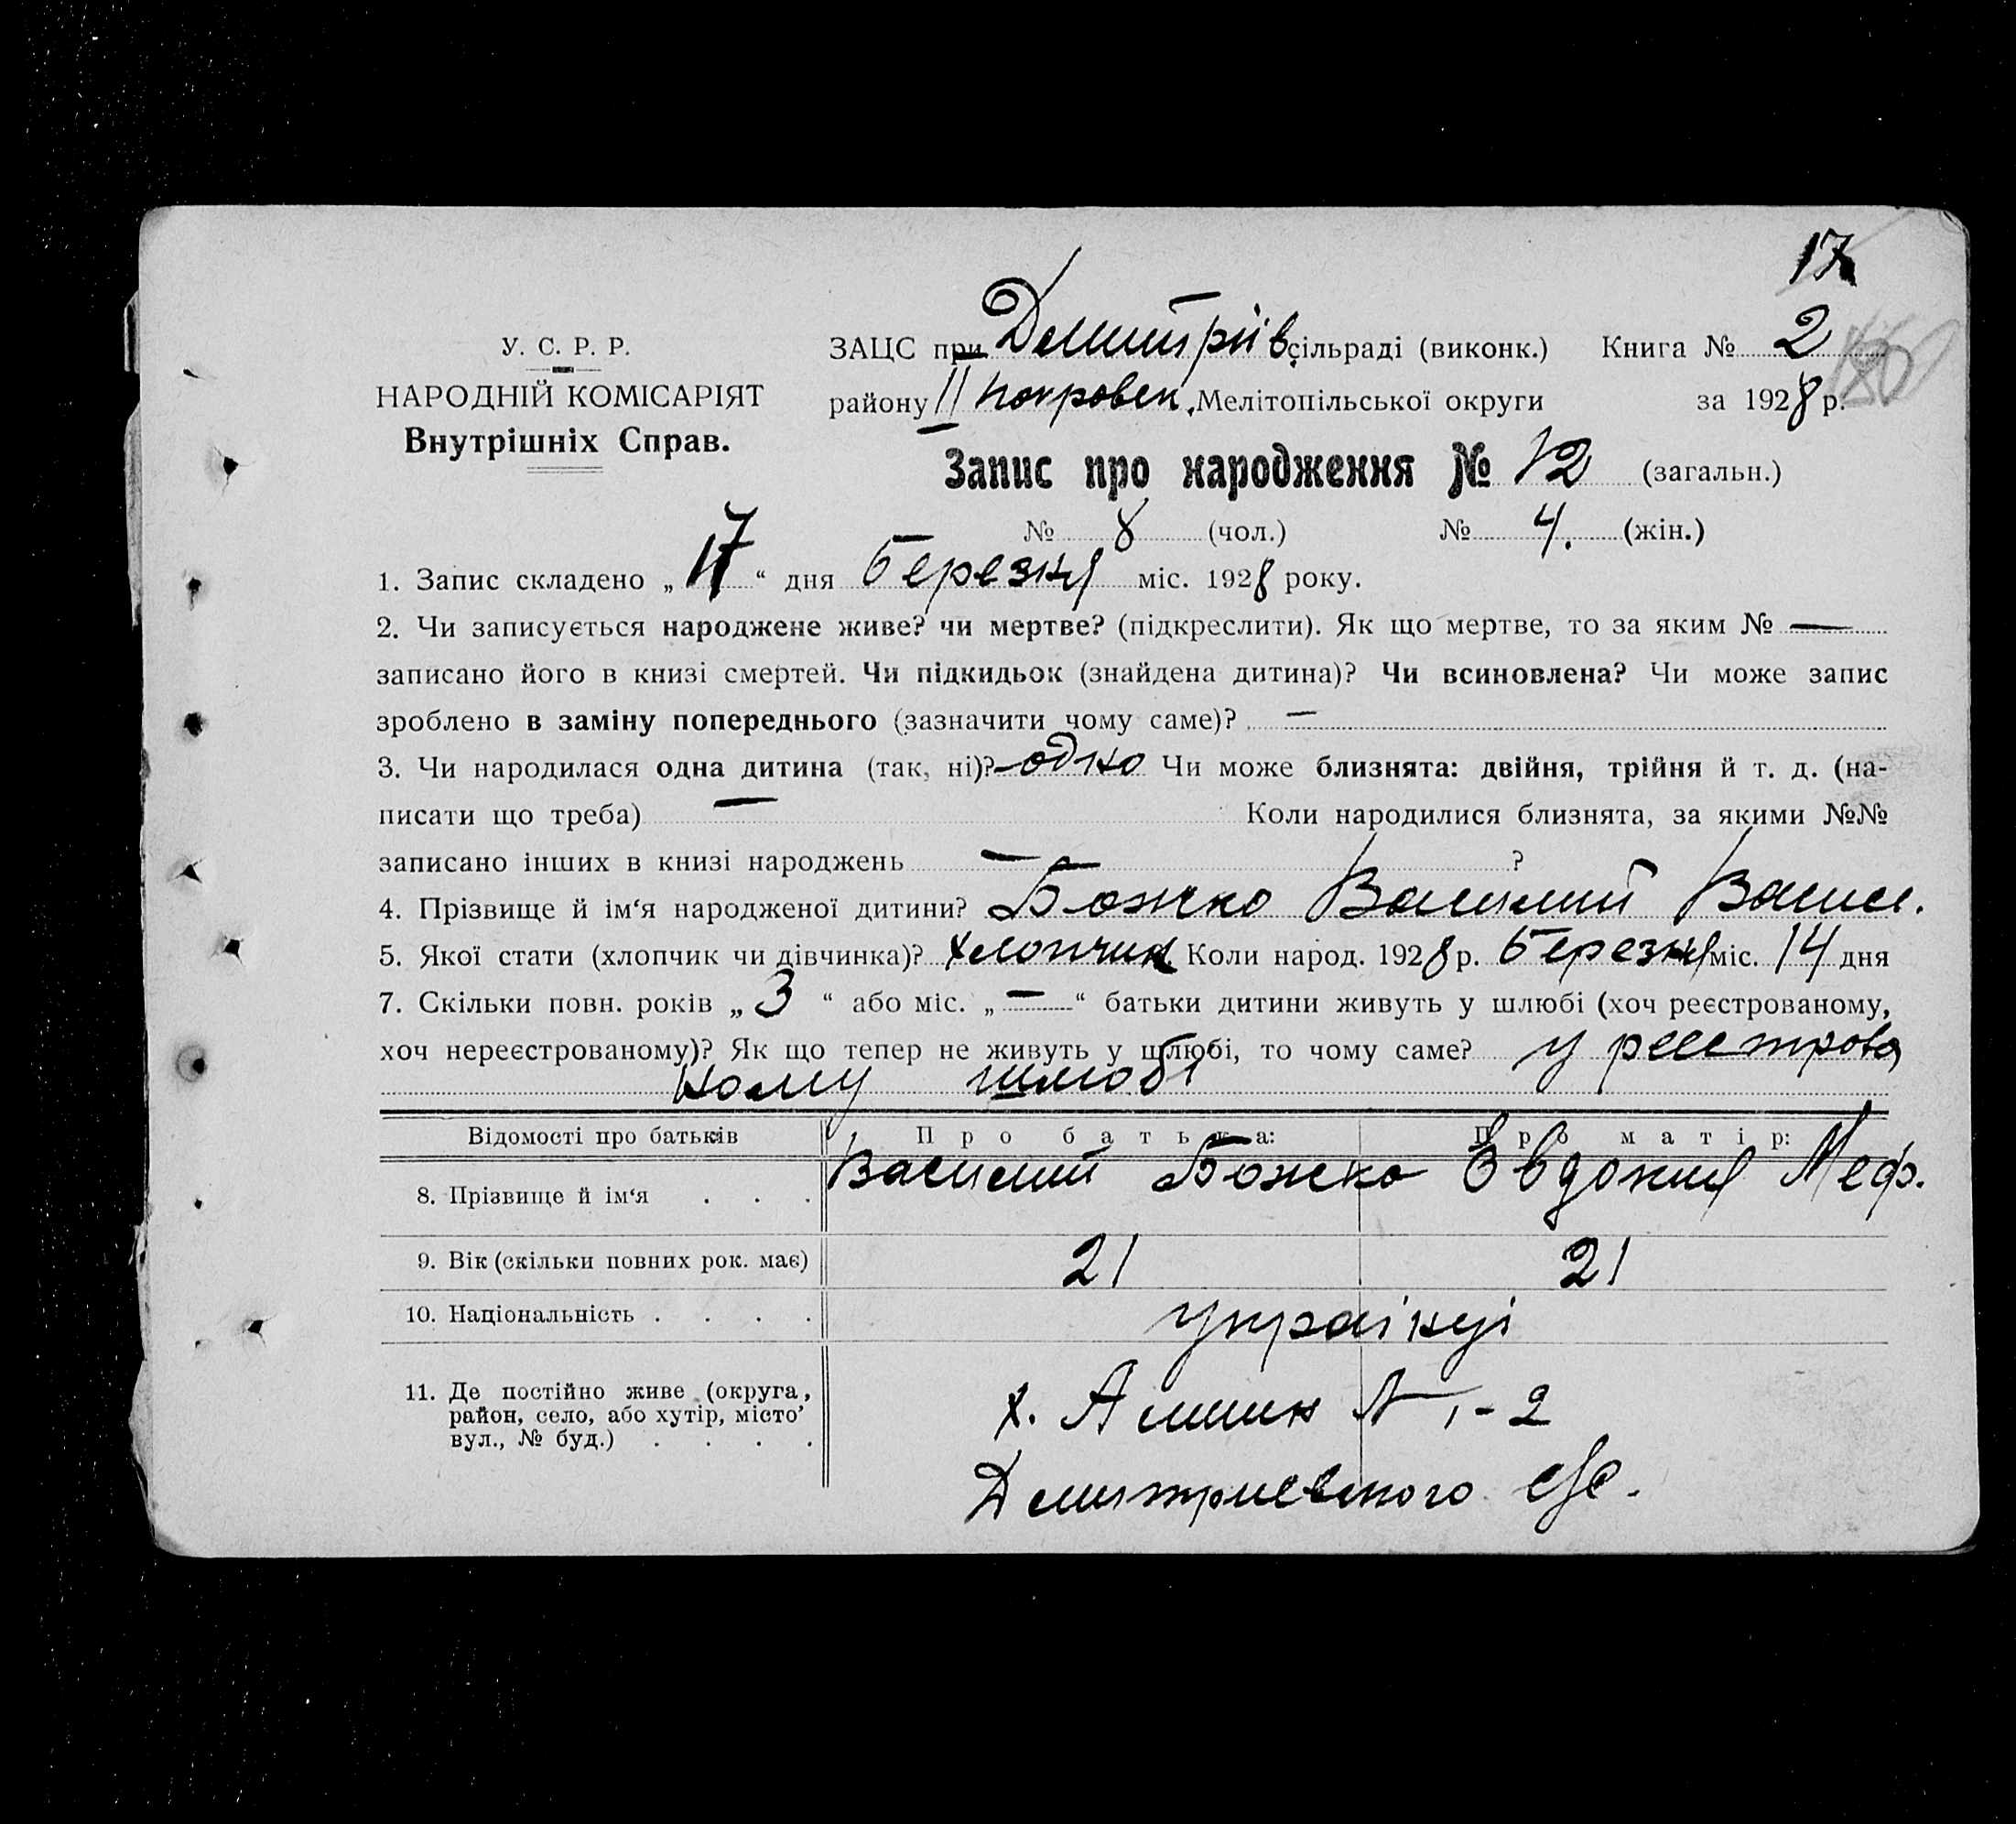 17
У. С. Р. Р.
НАРОДНІЙ КОМІСАРІЯТ
Внутрішніх Справ.
ЗАЦС при Дмитріів сільраді (виконк.) Книга № 2
району II Покровськ. Мелітопільської округи за 1928 р.
Запис про народження № 12 (загальн.)
№ 8 (чол.) № 4. (жін.)
1. Запис складено „ 17 “ дня березня міс. 1928 року.
2. Чи записується народжене живе? чи мертве? (підкреслити). Як що мертве, то за яким № —
записано його в книзі смертей. Чи підкидьок (знайдена дитина)? Чи всиновлена? Чи може запис
зроблено в заміну попереднього (зазначити чому саме)? —
3. Чи народилася одна дитина (так, ні)? одно Чи може близнята: двійня, трійня й т. д. (на-
писати що треба) — Коли народилися близнята, за якими №№
записано інших в книзі народжень — ?
4. Прізвище й ім‘я народженої дитини? Божко Василий Васил.
5. Якої стати (хлопчик чи дівчинка)? хлопчик Коли народ. 1928 р. березня міс. 14 дня
7. Скільки повн. років „ 3 “ або міс. „ — “ батьки дитини живуть у шлюбі (хоч реєстрованому,
хоч нереєстрованому)? Як що тепер не живуть у шлюбі, то чому саме? у реєстрова
ному шлюбі
Відомості про батьків Про батька: Про матір:
8. Прізвище й ім‘я . . . Василий Божко Евдокия Меф.
9. Вік (скільки повних рок. має) 21 21
10. Національність . . . . українці
11. Де постійно живе (округа,
район, село, або хутір, місто’
вул., № буд.) . . . .
х. № 1-2
Дмитриевского с/с.